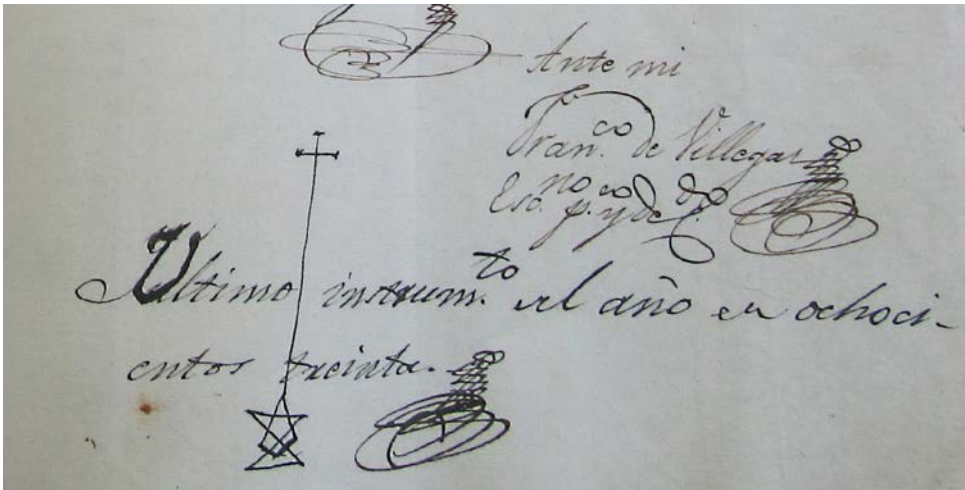 Ante mi
Fran.co de Villegas
Esc.no p.co y de C.do
Ultimo instrum.to del año de ochoci-
entos treinta.